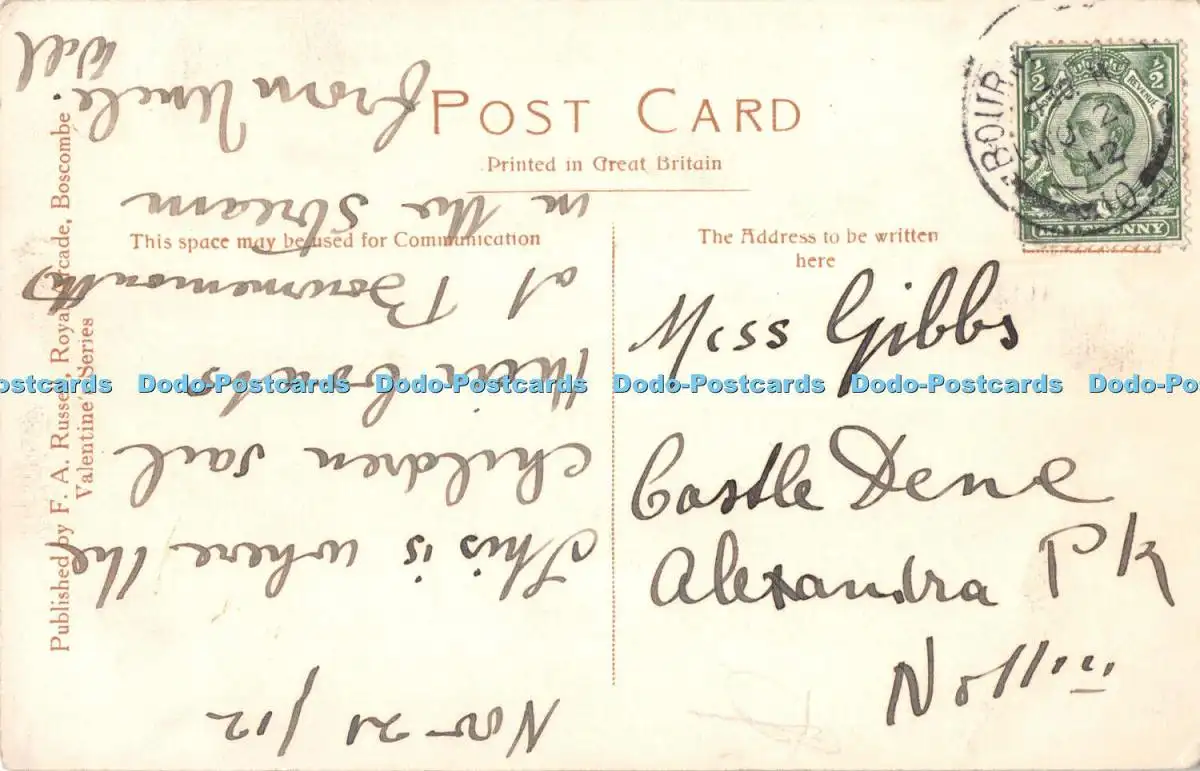 POST CARD
Printed in Great Britain
This space may be used for Communication
The Address to be written
here
Published by F. A. Russell, Royal Arcade, Boscombe
Valentine's Series
Nov 21/12
This is where the
children sail
their boats
at Bournemouth
in the stream
from Uncle.
Will
Miss Gibbs
Castle Dene
Alexandra Pk
Nottm
½ ½
POSTAGE REVENUE
HALFPENNY
BOUR
NO 21
12
Dodo-Postcards Dodo-Postcards Dodo-Postcards Dodo-Postcards Dodo-Postcards